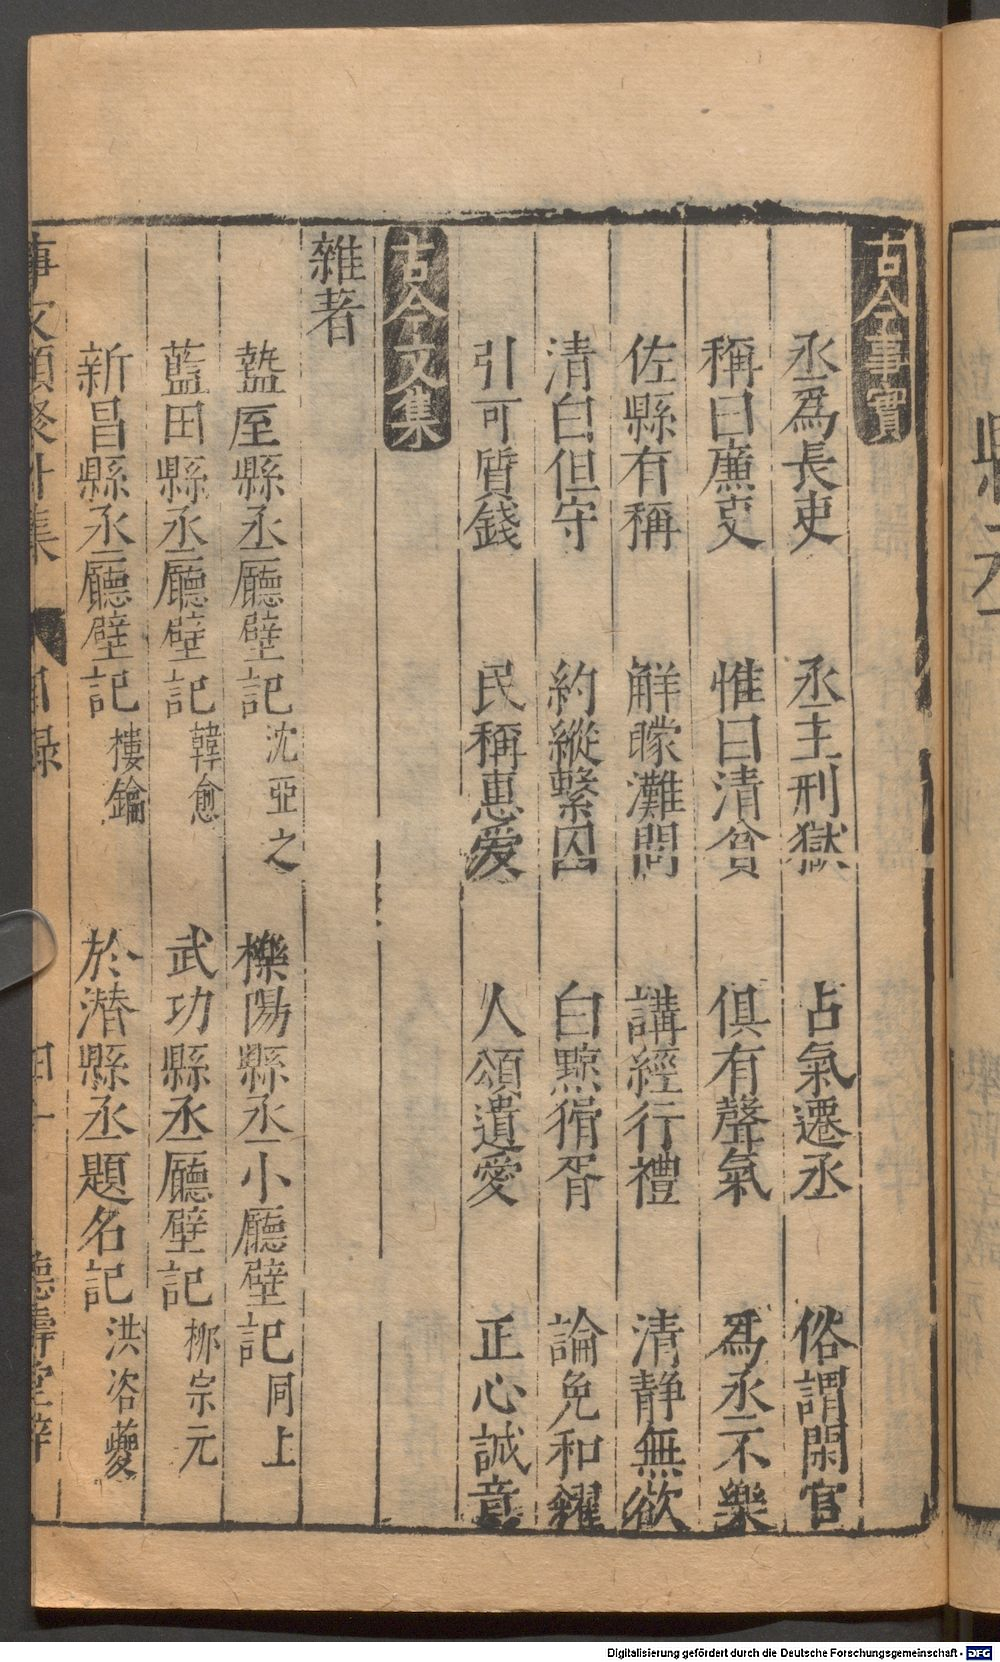 古今事實
丞爲長吏　丞主刑獄　占氣遷丞　俗謂閑官
稱曰廉吏　惟曰清貧　俱有聲氣　爲丞不樂
佐縣有稱　觧矇灘問　講經行禮　清靜無欲
清白但守　約縱繫囚　白黥猾胥　論免和糴
引可質錢　民稱惠爱　人頌遺愛　正心誠意
古今文集
雜著
盩厔縣丞廳壁記 沈亞之　櫟陽縣丞小廳壁記 同上
藍田縣丞廳壁記 韓愈　武功縣丞廳壁記 柳宗元
新昌縣丞廳壁記 樓鑰　於潜縣丞題名記 洪咨夔
事文類聚外集　目録　德壽堂梓
Digitalisierung gefördert durch die Deutsche Forschungsgemeinschaft - DFG